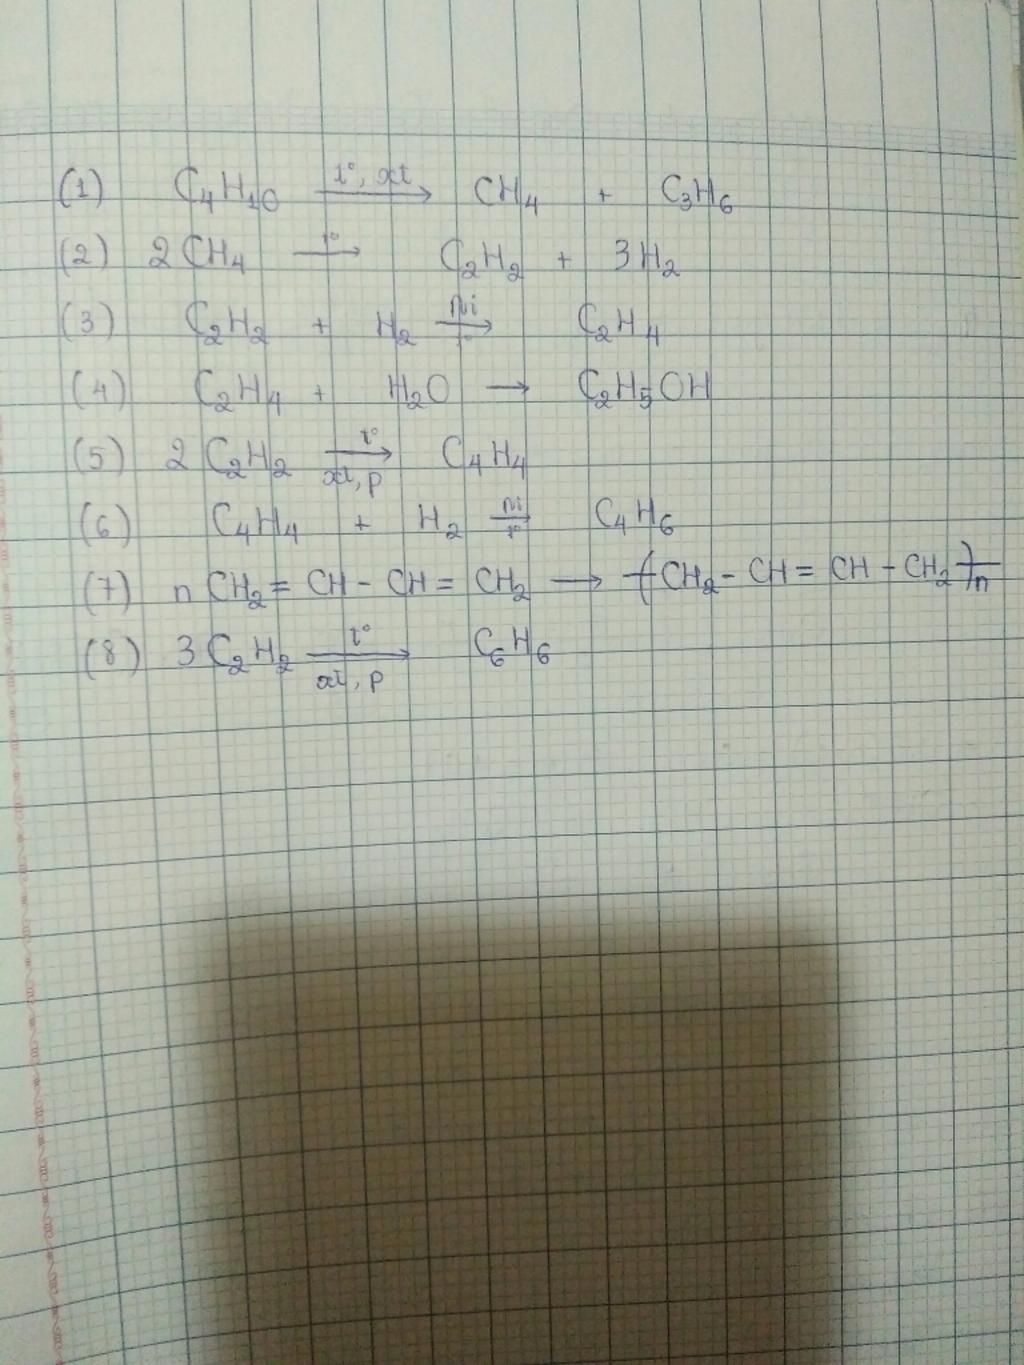 (1) C₄H₁₀ —t°, xt→ CH₄ + C₃H₆
(2) 2CH₄ —t°→ C₂H₂ + 3H₂
(3) C₂H₂ + H₂ —Ni, t°→ C₂H₄
(4) C₂H₄ + H₂O → C₂H₅OH
(5) 2C₂H₂ —t°, xt, p→ C₄H₄
(6) C₄H₄ + H₂ —Ni, t°→ C₄H₆
(7) n CH₂ = CH - CH = CH₂ → -(CH₂ - CH = CH - CH₂)-n
(8) 3C₂H₂ —t°, xt, p→ C₆H₆